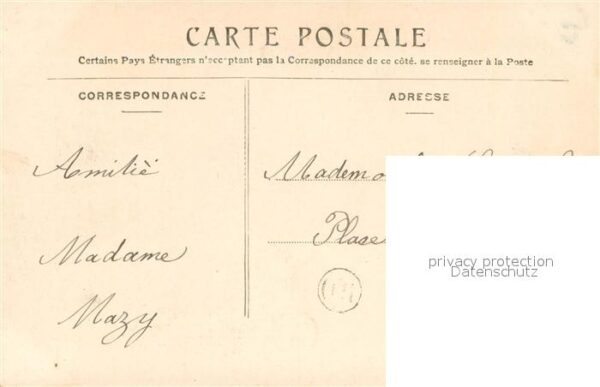 CARTE POSTALE
Certains Pays Étrangers n'acceptant pas la Correspondance de ce côté, se renseigner à la Poste
CORRESPONDANCE
Amitié
Madame
Mazy
ADRESSE
Madem
Place
privacy protection
Datenschutz